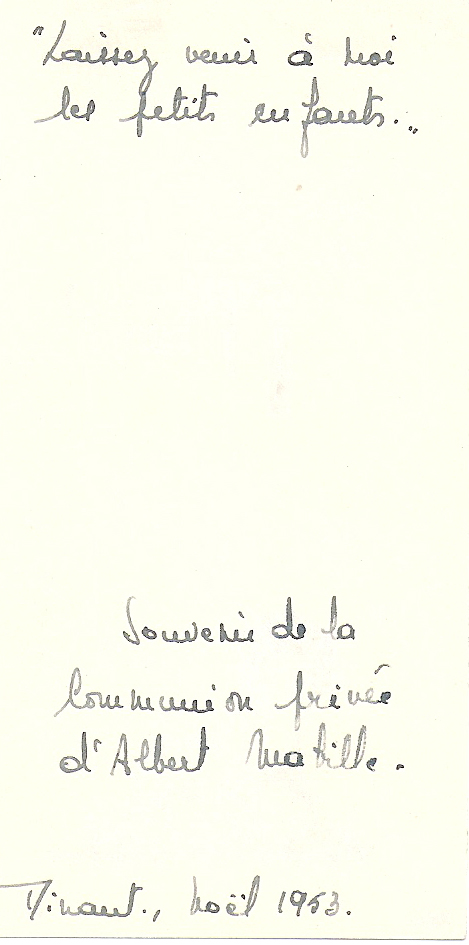 "Laissez venir à moi
les petits enfants."
Souvenir de la
Communion privée
d'Albert Matille.
Dinant., Noël 1953.